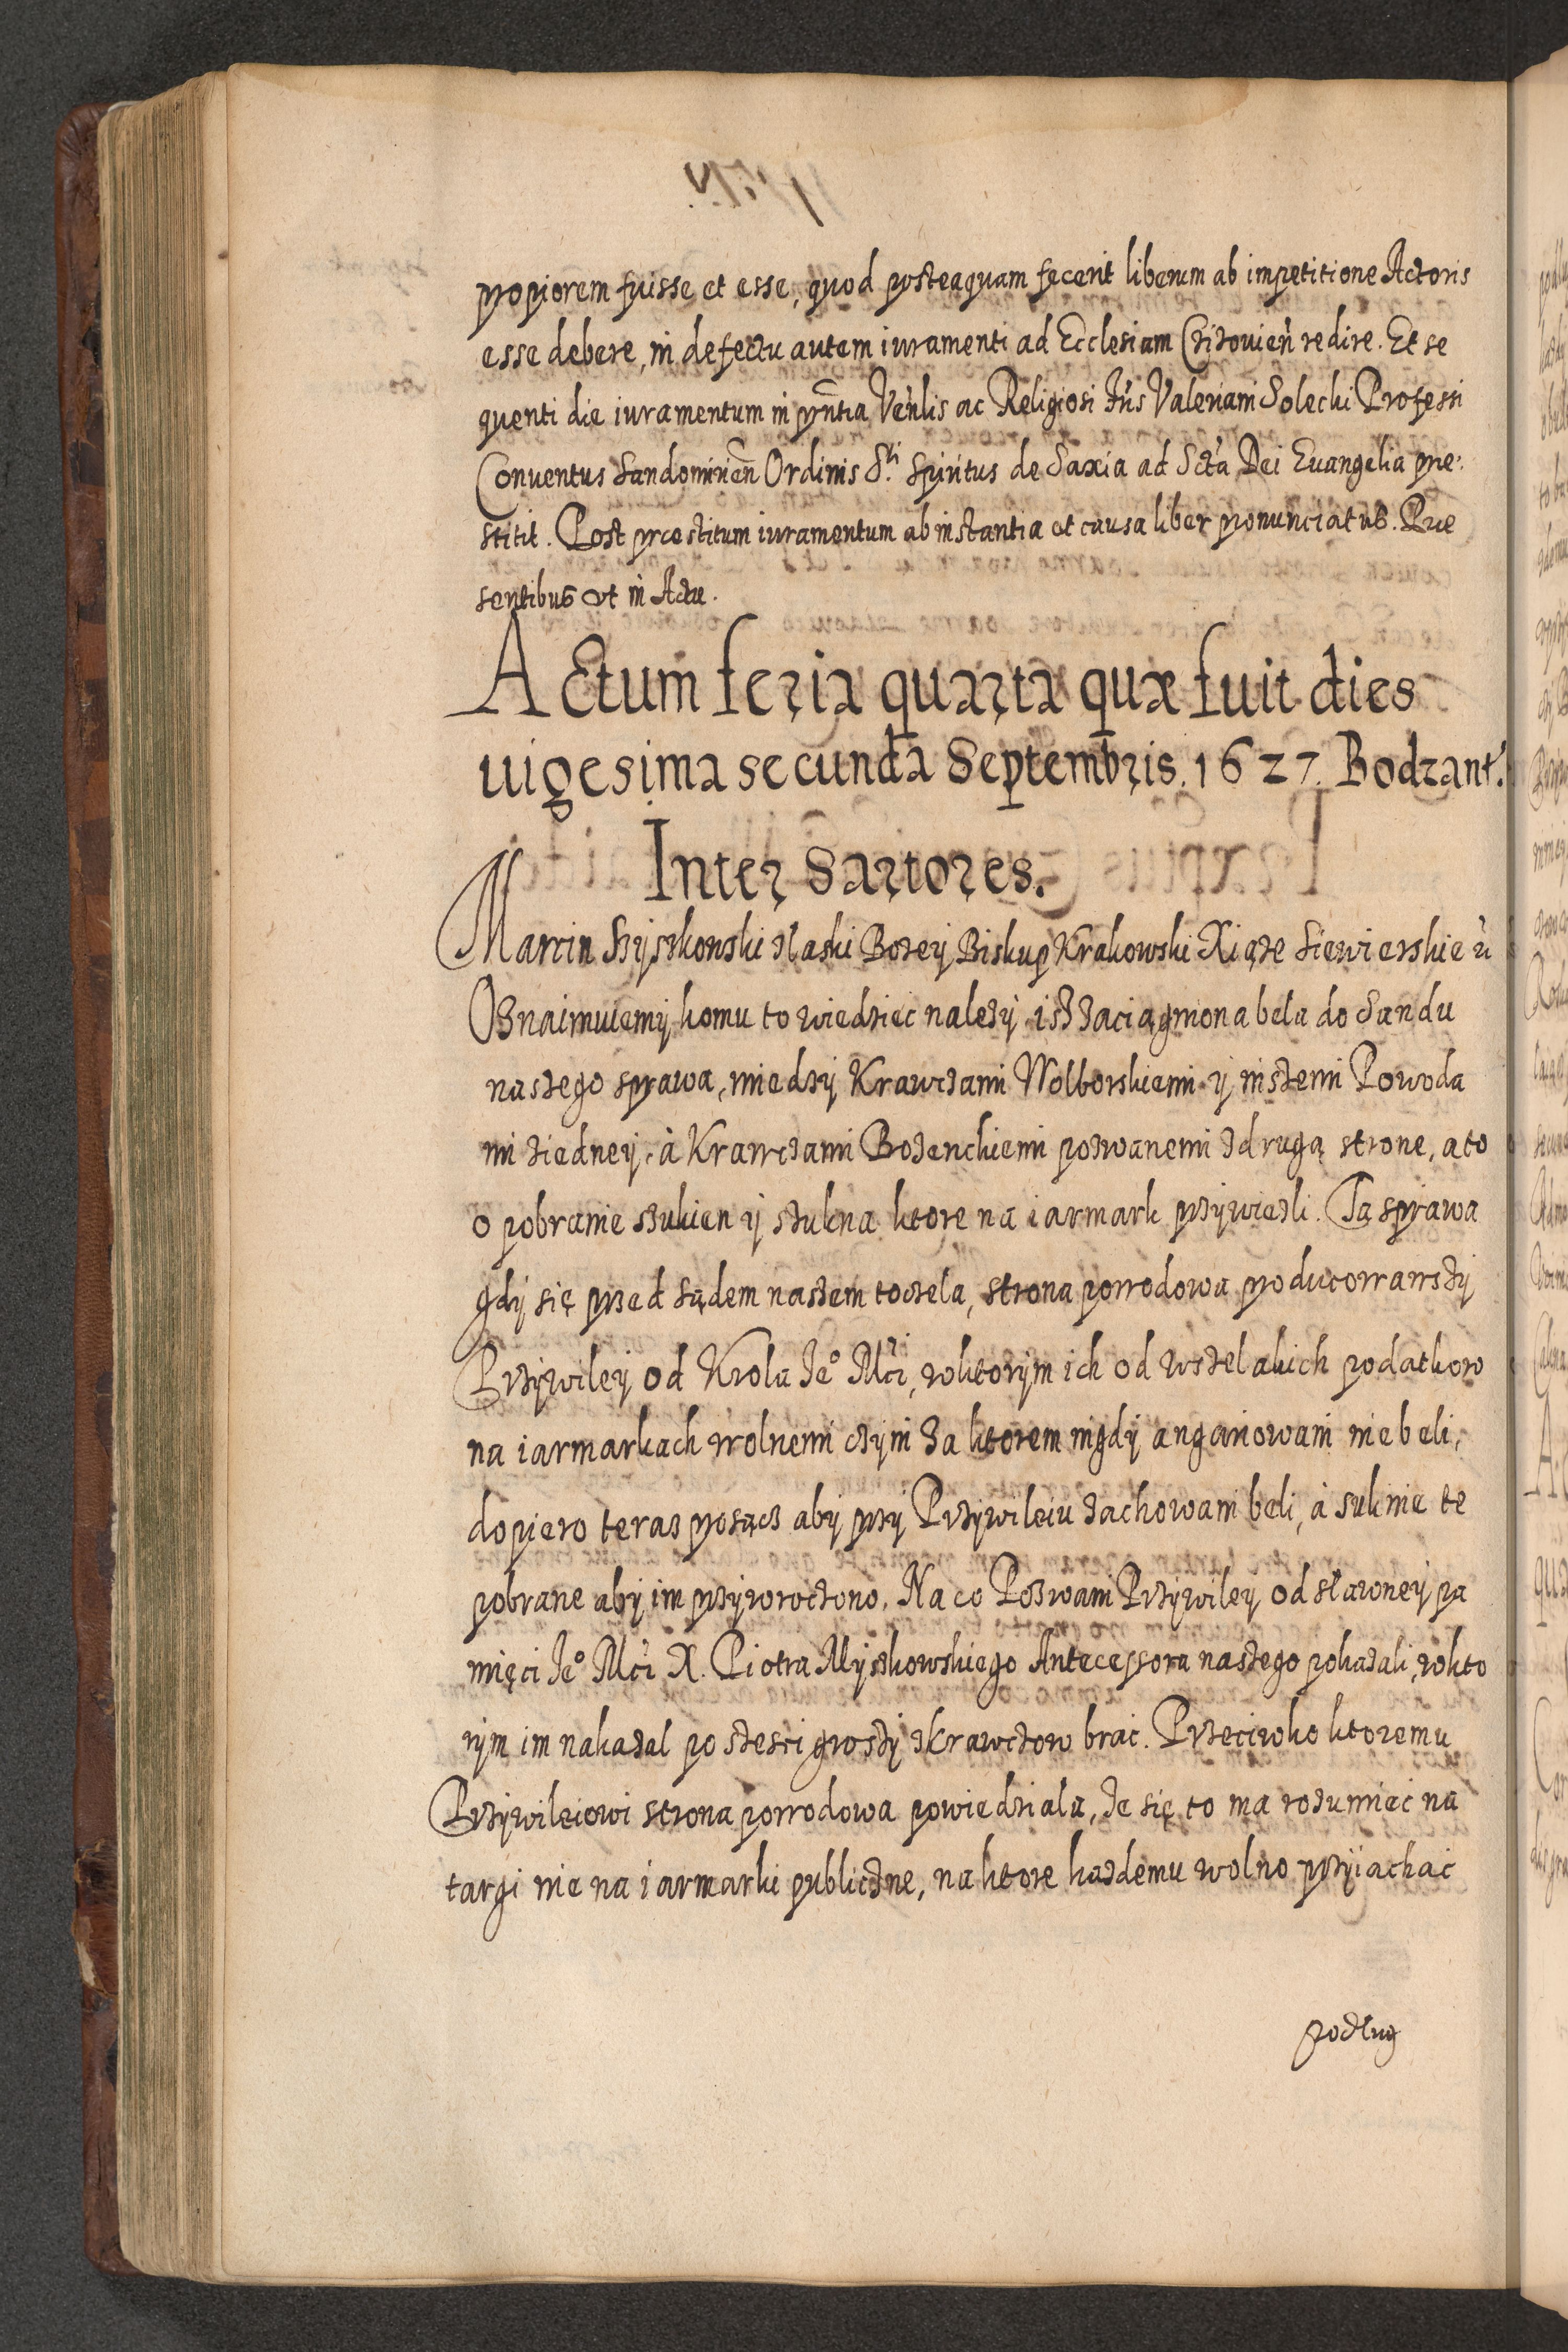 propiorem fuisse et esse, quod posteaquam fecerit liberum ab impetitione Actoris
esse debere, in defectu autem iuramenti ad Ecclesiam redire. Et se
quenti die iuramentum in pñtia Veñlis ac Religiosi Fris Valeriani Solecki Professi
Conventus Sandomirien Ordinis Sti Spiritus de Saxia ad Scta Dei Euangelia pre:
stitit. Post prestitum iuramentum ab instantia et causa liber pronunciatus. Pre
sentibus vt in Actu.
Actum feria quarta quæ fuit dies
uigesima secunda Septembris. 1627. Bodzant.
Inter Sartores.
Marcin Szyszkowski z łaski Bozey Biskup Krakowski Xiąze Siewierskie
Oznaimuiemy komu to wiedziec nalezy, isz zaciągniona bela do Sandu
naszego sprawa, miedzy Krawczami Wolborskiemi y inszemi Powoda
mi ziedney, à Krawczami Bozenckiemi pozwanemi z drugą strone, a to
o pobranie szukien y szukna ktore na iarmark przywiezli. Ta sprawa
gdy się przed Sądem naszem toczela, strona powodowa producowawszy
Przywiley od Krola Je° Mci, wktorym ich od wszelakich podatkow
na iarmarkach wolnemi czyni za ktorem nigdy angariowani nie beli,
dopiero teraz prosząc aby przy Przywileiu zachowani beli, à suknie te
pobrane aby im przywroczono. Na co Pozwani Przywiley od sławney pa
mięci Je° Mci X. Piotra Myszkowskiego Antecessora naszego pokazali, wkto
rym im nakazal po szesci groszy zkrawczow brac. Przeciwko ktoremu
Przywileiowi strona powodowa powiedziala, ze się to ma rozumiec na
targi nie na iarmarki publiczne, na ktore kazdemu wolno przyiachac
podług